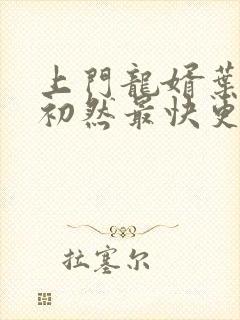 上門龍婿葉
初然最快更
拉塞尔